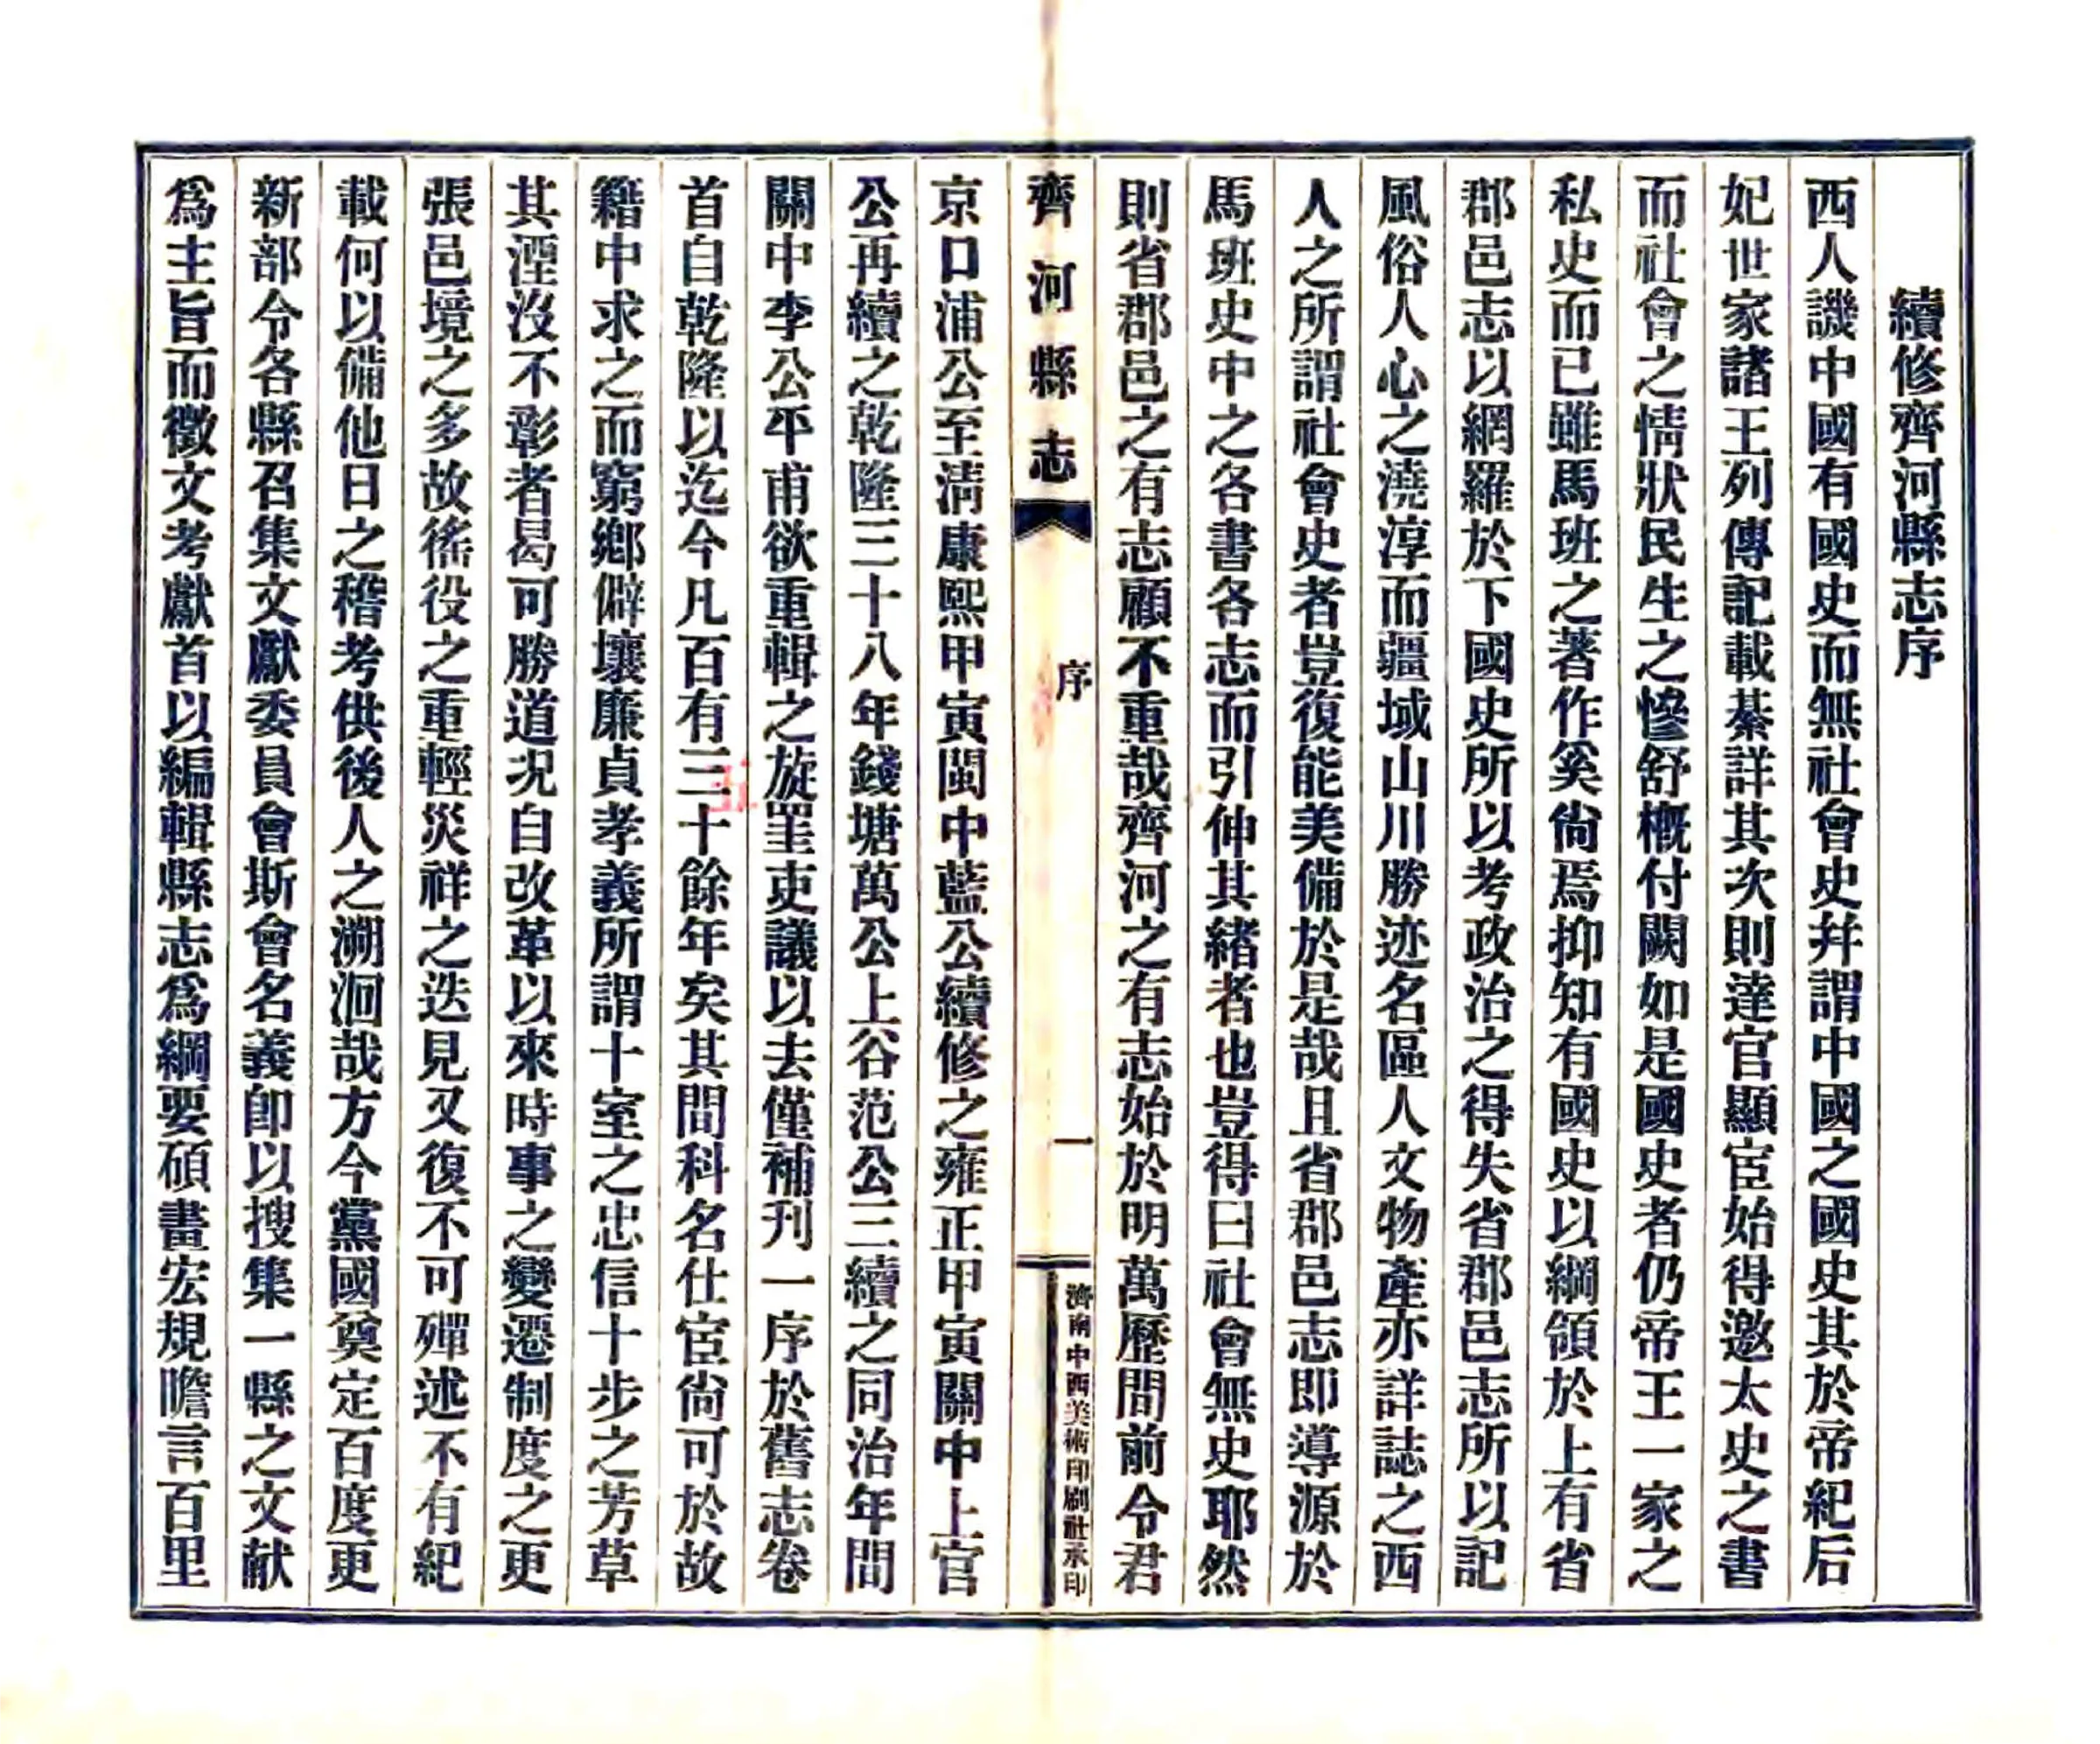 續修齊河縣志序
西人譏中國有國史而無社會史幷謂中國之國史其於帝紀后
妃世家諸王列傳記載綦詳其次則達官顯宦始得邀太史之書
而社會之情狀民生之慘舒槪付闕如是國史者仍帝王一家之
私史而已雖馬班之著作奚尙焉抑知有國史以綱領於上有省
郡邑志以網羅於下國史所以考政治之得失省郡邑志所以記
風俗人心之澆淳而疆域山川勝迹名區人文物產亦詳誌之西
人之所謂社會史者豈復能美備於是哉且省郡邑志即導源於
馬班史中之各書各志而引伸其緒者也豈得曰社會無史耶然
則省郡邑之有志顧不重哉齊河之有志始於明萬歷間前令君
齊河縣志
序
一
濟南中西美術印刷社承印
京口浦公至淸康熙甲寅閩中藍公續修之雍正甲寅關中上官
公再續之乾隆三十八年錢塘萬公上谷范公三續之同治年間
關中李公平甫欲重輯之旋罣吏議以去僅補刋一序於舊志卷
首自乾隆以迄今凡百有三十餘年矣其間科名仕宦尙可於故
五
籍中求之而窮鄕僻壤廉貞孝義所謂十室之忠信十步之芳草
其湮沒不彰者曷可勝道况自改革以來時事之變遷制度之更
張邑境之多故徭役之重輕災祥之迭見又復不可殫述不有紀
載何以備他日之稽考供後人之溯洄哉方今黨國奠定百度更
新部令各縣召集文獻委員會斯會名義卽以搜集一縣之文献
爲主旨而徵文考獻首以編輯縣志爲綱要碩畫宏規瞻言百里